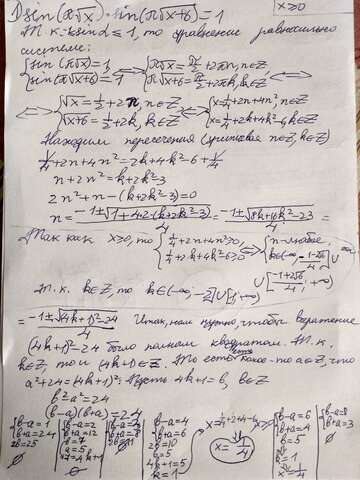 1) sin(π√x)·sin(π√x+6)=1
x≥0
Т. к. -1≤sin α≤1, то уравнение равносильно
системе:
{sin(π√x)=1 ⟺ {π√x=π/2+2πn, n∈Z
{sin(π√x+6)=1 {π√x+6=π/2+2πk, k∈Z
⟺ {√x=1/2+2n, n∈Z ⟺ {x=1/4+2n+4n², n∈Z
{√x+6=1/2+2k, k∈Z {x=1/4+2k+4k²-6, k∈Z
Находим пересечения (учитывая n∈Z, k∈Z)
1/4+2n+4n²=2k+4k²-6+1/4
n+2n²=k+2k²-3
2n²+n-(k+2k²-3)=0
n= (-1±√1+4·2·(k+2k²-3))/4 = (-1±√8k+16k²-23)/4 =
Так как x≥0, то {1/4+2n+4n²≥0, ⟺ {n-любое,
{1/4+2k+4k²-6≥0
Т. к. k∈Z, то k∈(-∞,-2]∪[1,+∞)
= (-1±√(4k+1)²-24)/4 Итак, нам нужно, чтобы выражение
(4k+1)²-24 было полным квадратом. Т. к.
k∈Z, то и (4k+1)∈Z. То есть какое-то a∈Z, что
a²+24=(4k+1)². Пусть 4k+1=b, b∈Z
b²-a²=24
(b-a)(b+a)=24
{b-a=1
{b+a=24
2b=25
∅
{b-a=2
{b+a=12
b=7
a=5
7=4k+1
∅
{b-a=3
{b+a=8
2b=11
∅
{b-a=4
{b+a=6
2b=10
b=5
4k+1=5
k=1
x=1/4+2+4-6
x=1/4
{b-a=6
{b+a=4
b=5
k=1
x=1/4
{b-a=8
{b+a=3
∅